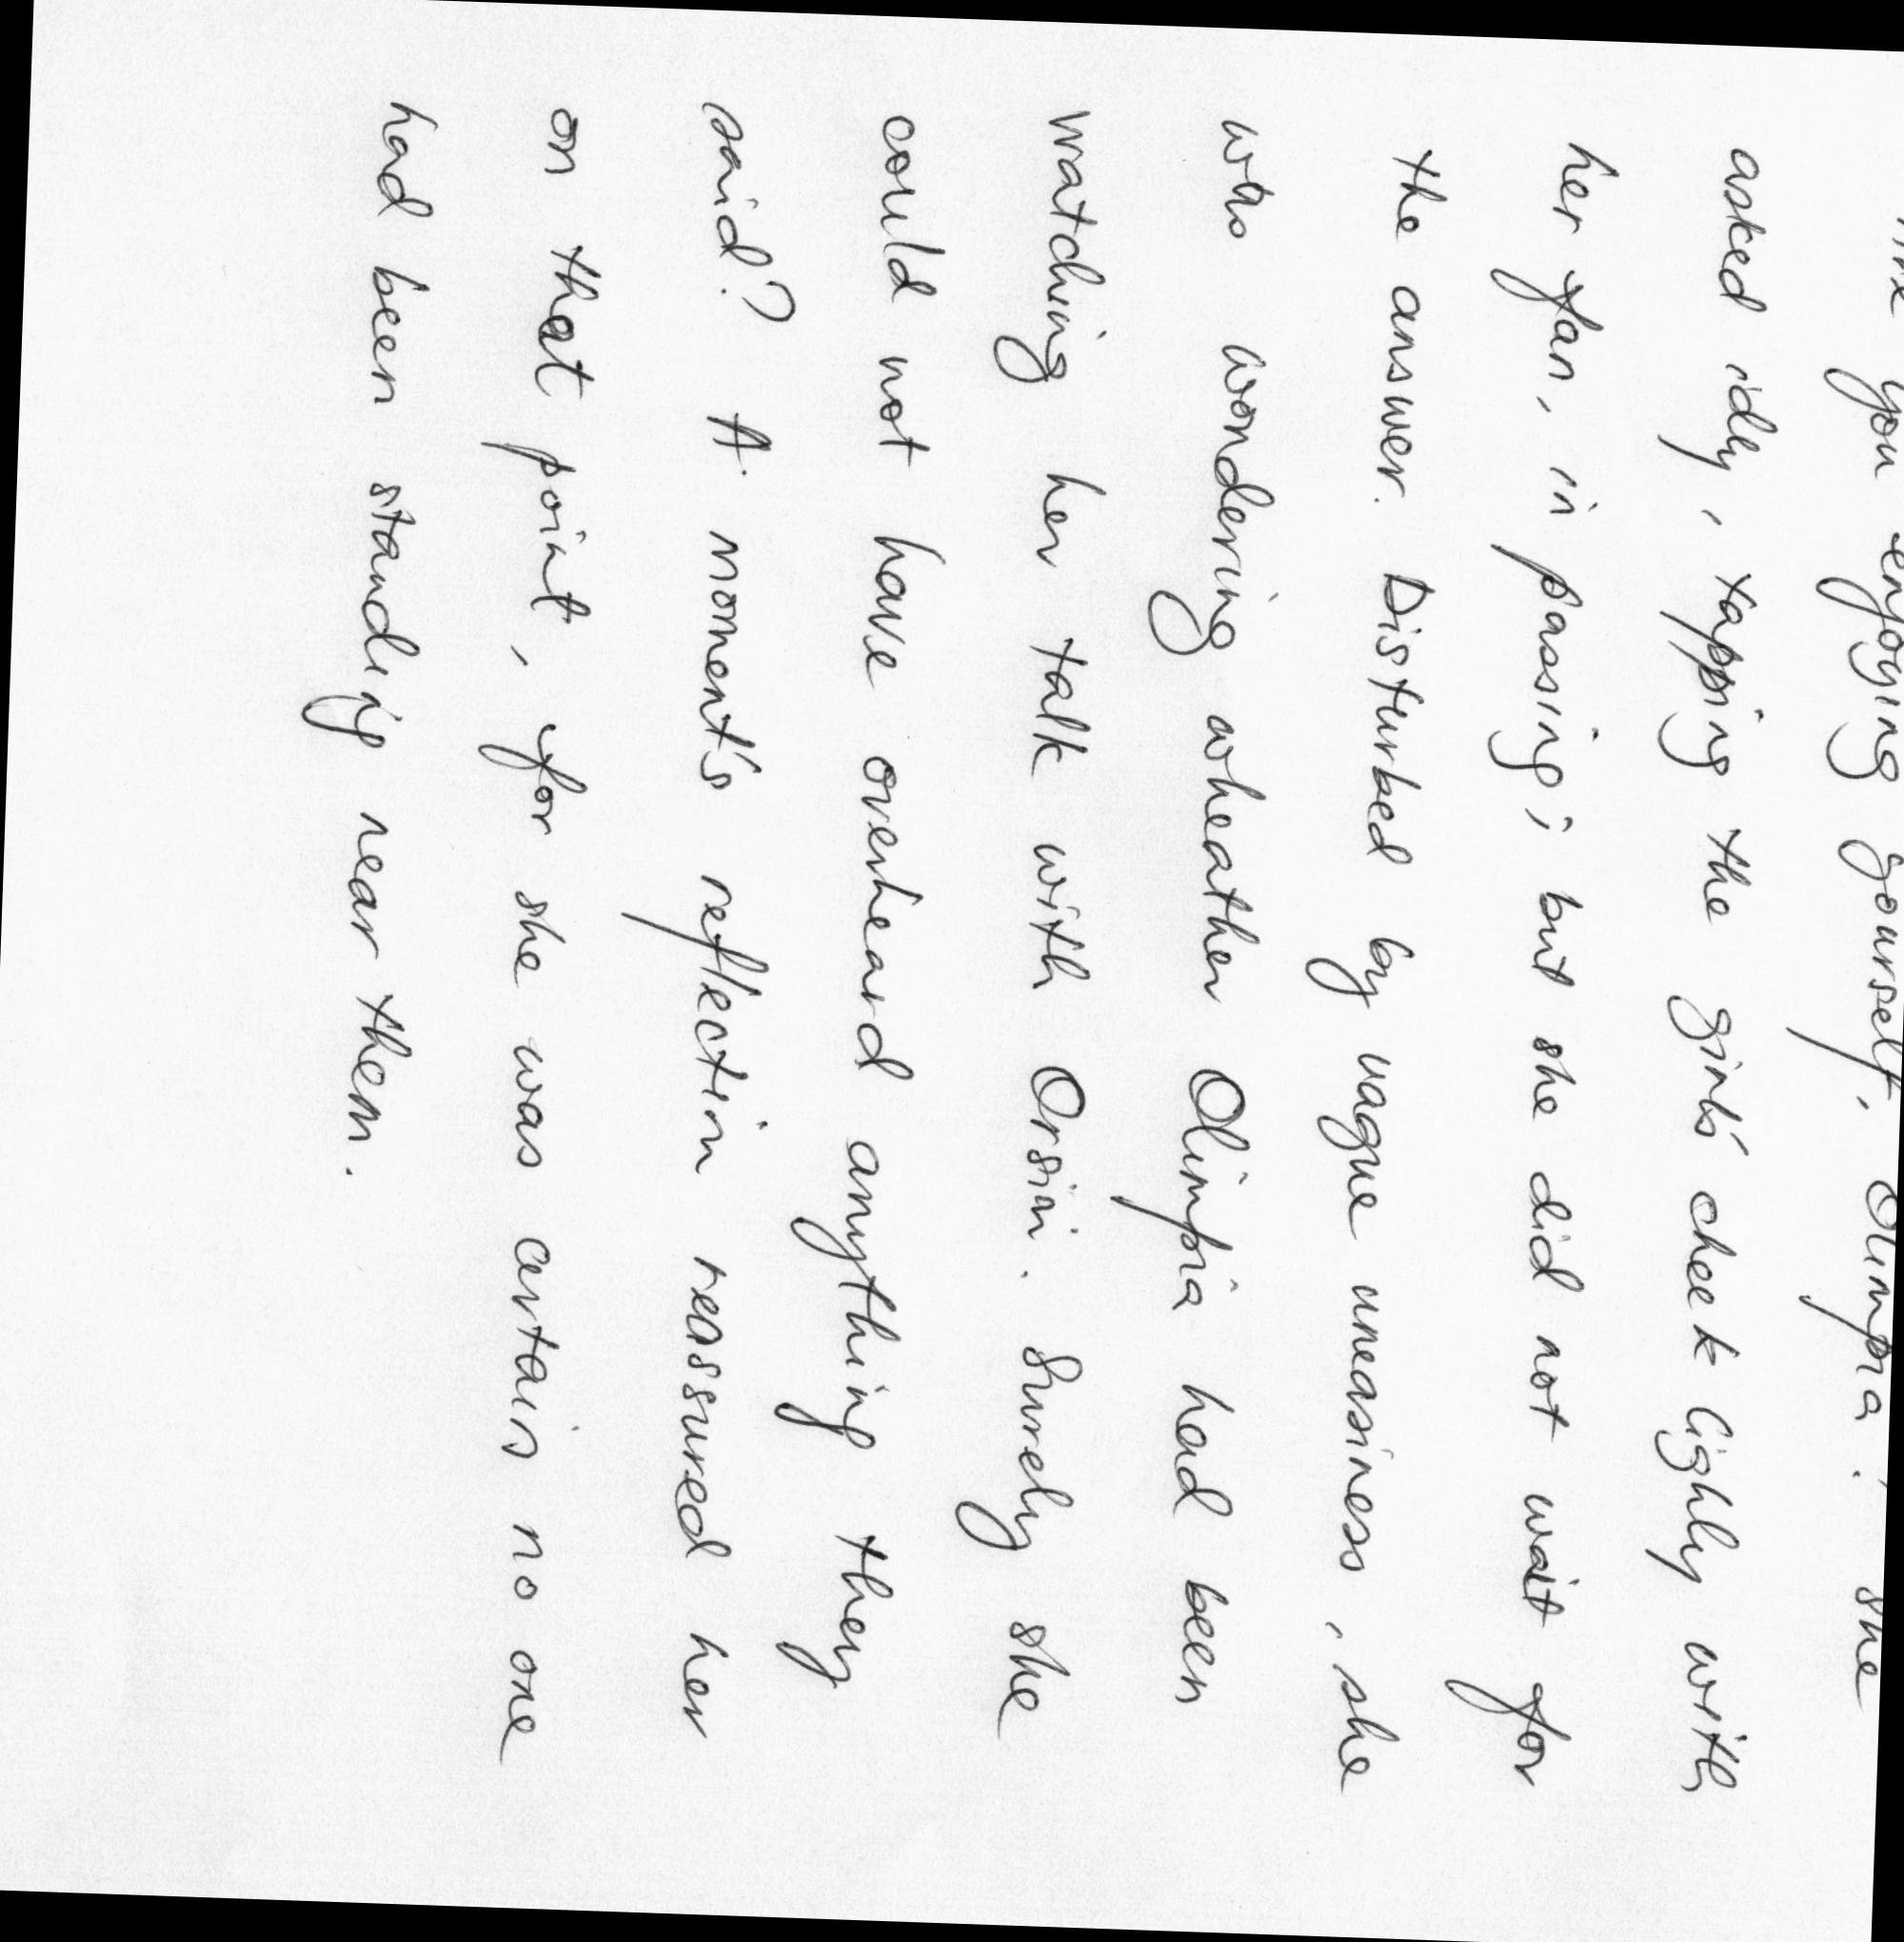 you enjoying yourself, Olimpia? she
asked idly, tapping the girls' cheek lighly with
her fan, in passing; but she did not wait for
the answer. Disturbed by vague uneasiness, she
was wondering wheather Olimpia had been
watching her talk with Orsini. Surely she
could not have overheard anything they
said? A moment's reflection reassured her
on that point, for she was certain no one
had been standing near them.